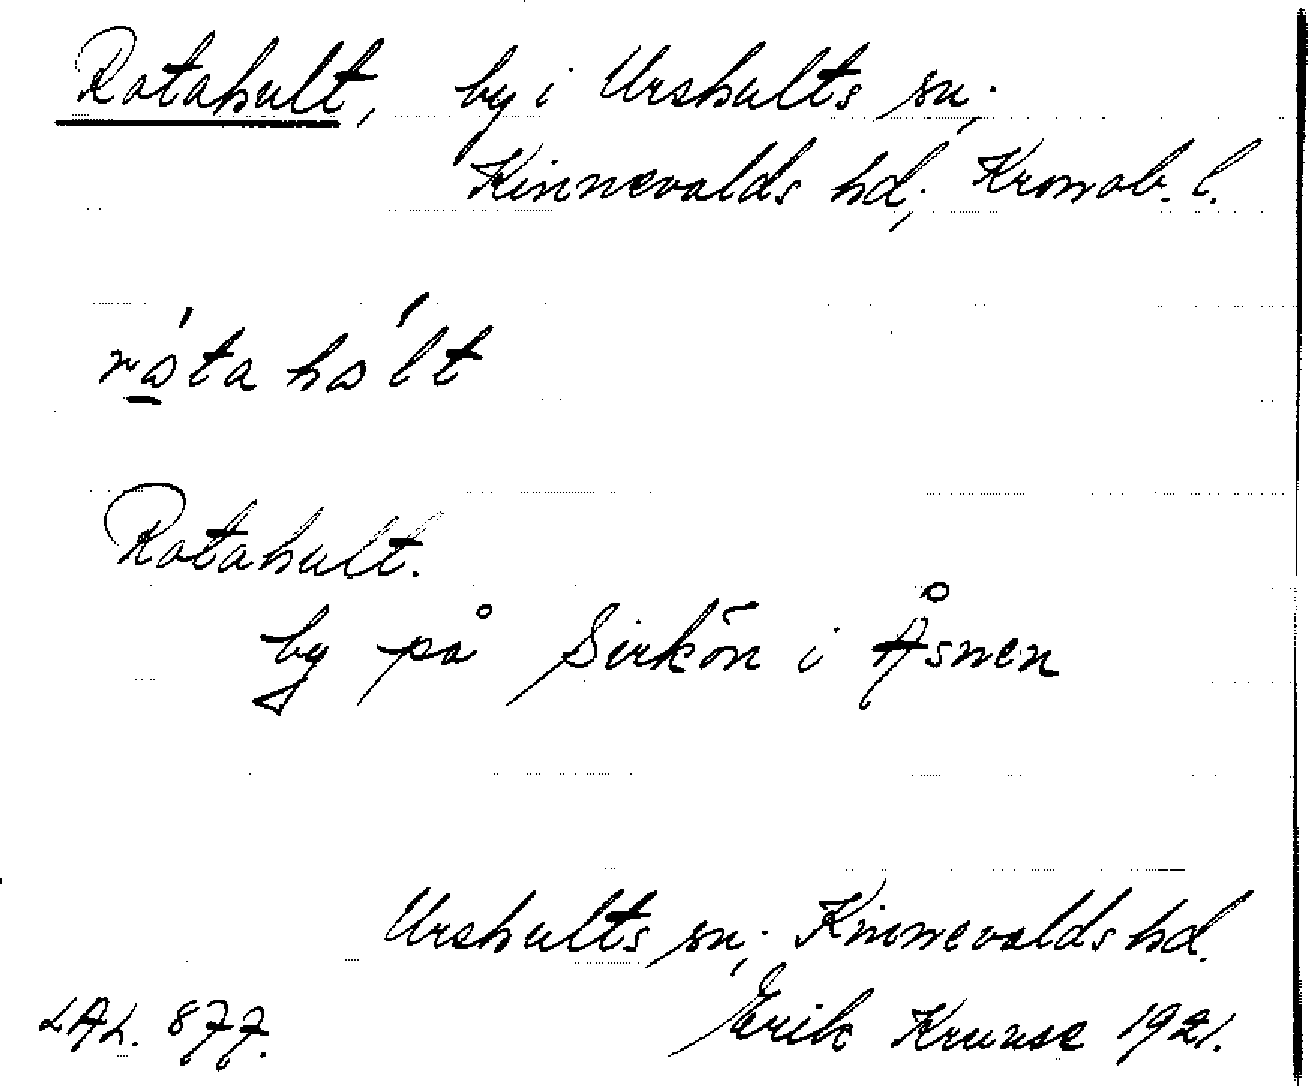 Ratahult, by i Urshults sn;
Kinnevalds hd; Kronob. l.
ra̲´ta ha´lt
Ratahult.
by på Sirkön i Åsnen
Urshults sn; Kinnevalds hd.
LAL. 877.
Erik Kruuse 1921.